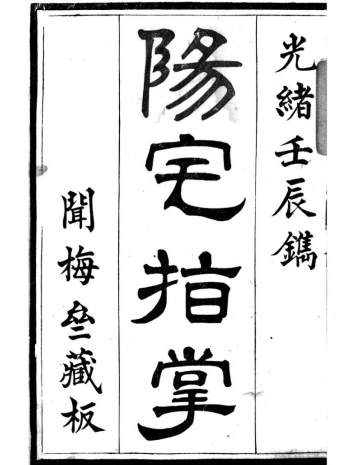 光緒壬辰鐫
陽宅指掌
聞梅 藏板